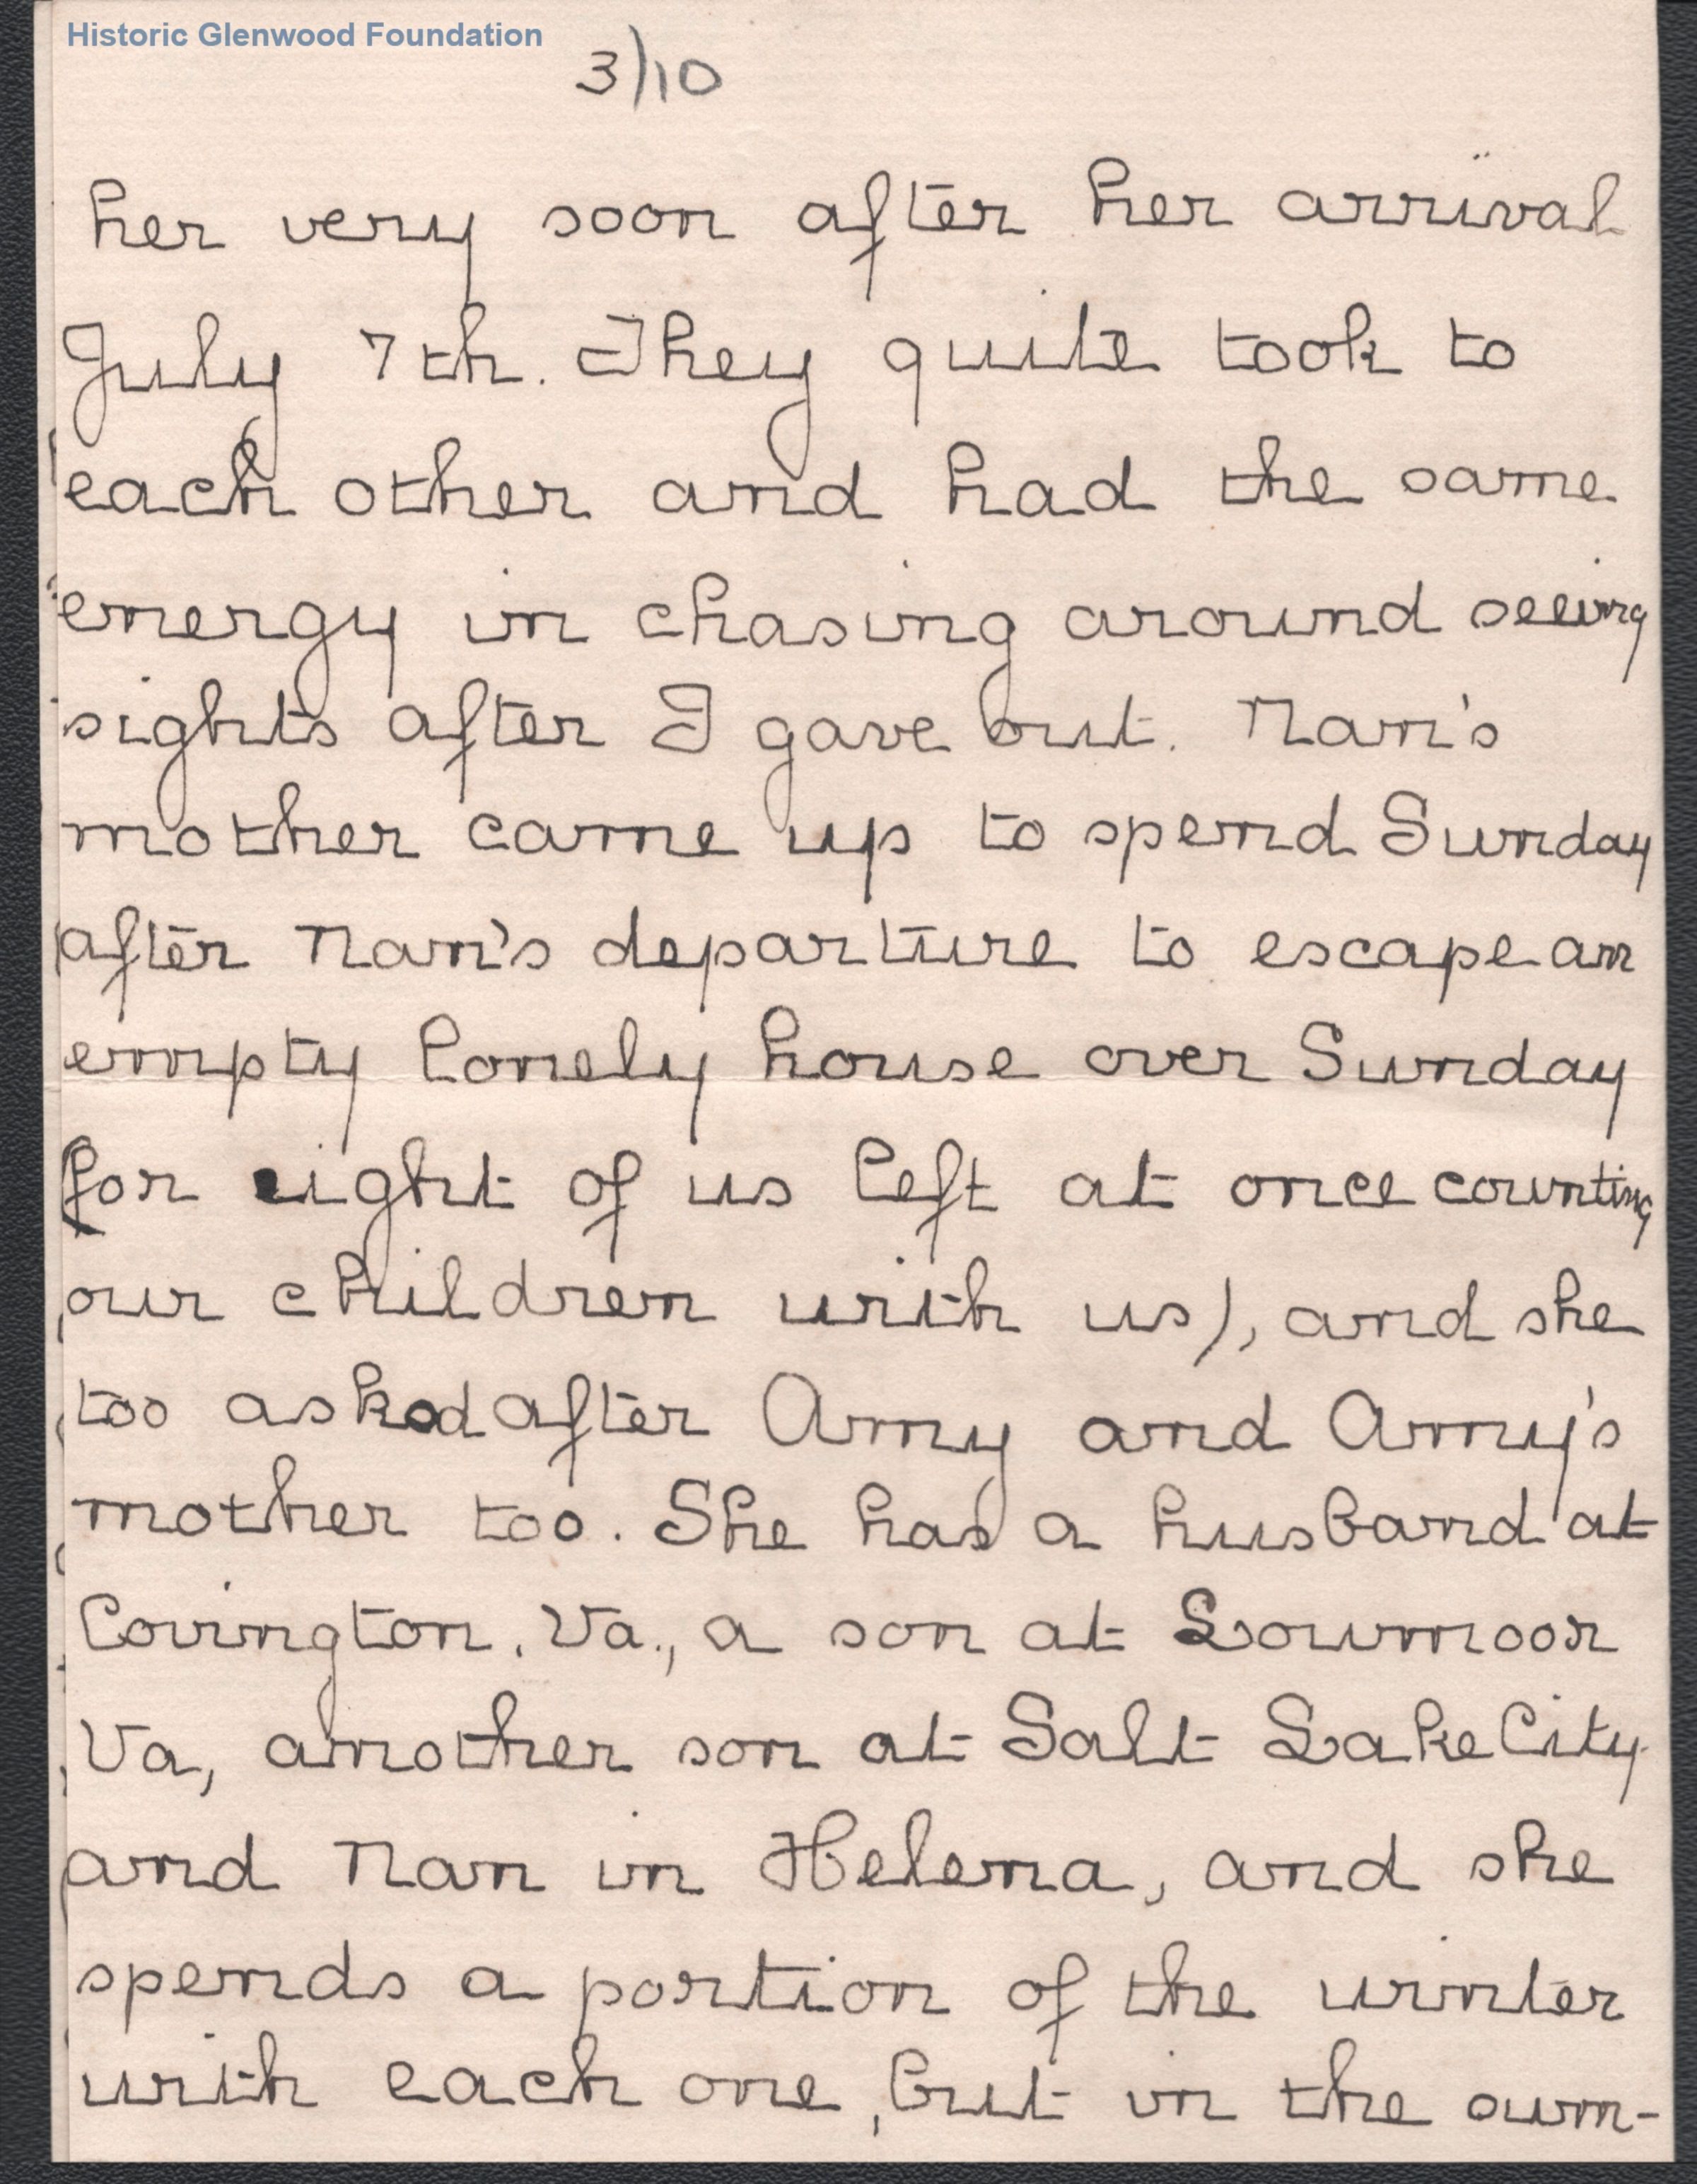 Historic Glenwood Foundation
3/10
her very soon after her arrival
July 7th. They quite took to
each other and had the same
energy in chasing around seeing
sights after I gave out. Nan's
mother came up to spend Sunday
after Nan's departure to escape an
empty lonely house over Sunday
(for eight of us left at once counting
our children with us), and she
too asked after Amy and Amy's
mother too. She has a husband at
Covington, Va., a son at Lowmoor
Va, another son at Salt Lake City
and Nan in Helena, and she
spends a portion of the winter
with each one, but in the sum-